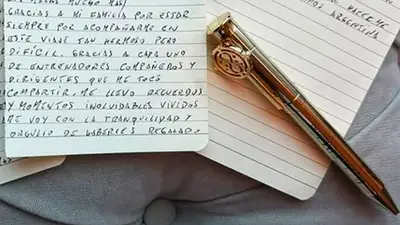 MUCHO MAS!
GRACIAS A MI FAMILIA POR ESTAR
SIEMPRE POR ACOMPAÑARME EN
ESTE VIAJE TAN HERMOSO PERO
DIFÍCIL. GRACIAS A CADA UNO
DE ENTRENADORES COMPAÑEROS Y
DIRIGENTES QUE ME TOCÓ
COMPARTIR. ME LLEVO RECUERDOS
Y MOMENTOS INOLVIDABLES VIVIDOS
ME VOY CON LA TRANQUILIDAD Y
ORGULLO DE HABERLES REGALADO.
HACERME
ARGENTINA